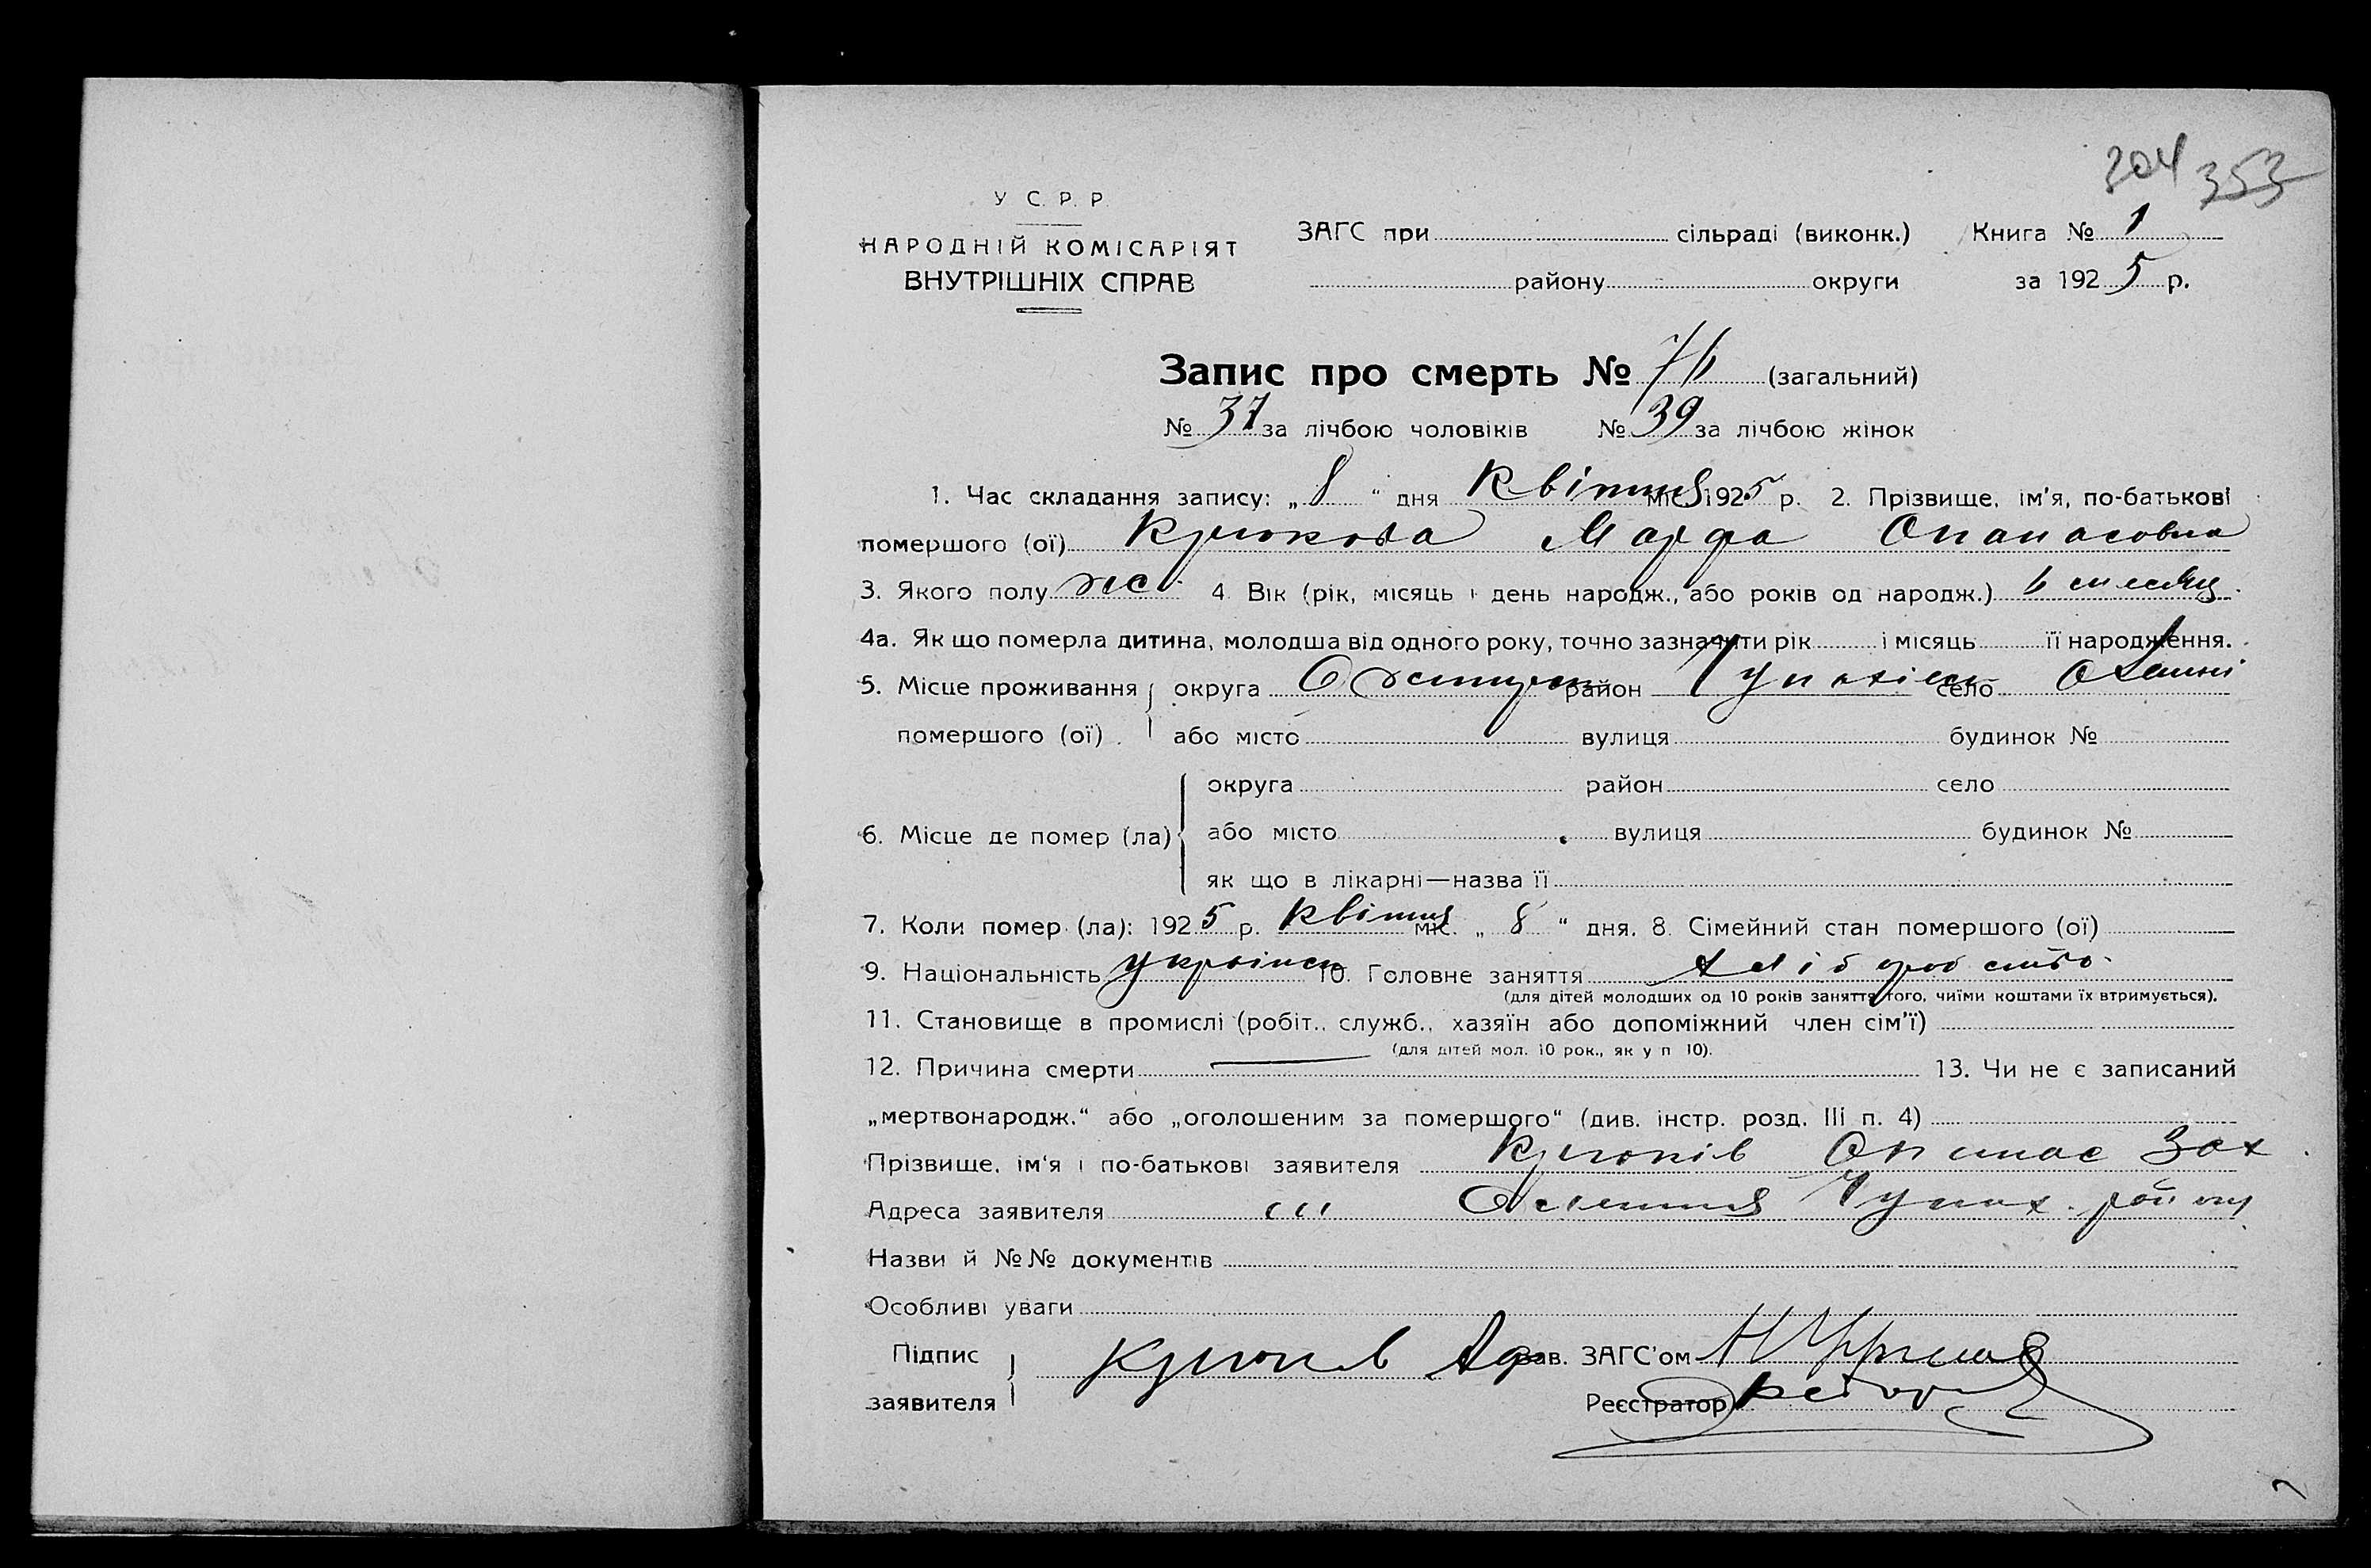 304 353
У С. Р. Р.
НАРОДНІЙ КОМІСАРІЯТ
ВНУТРІШНІХ СПРАВ
ЗАГС при сільраді (виконк.) Книга № 1
району округи за 1925 р.
Запис про смерть № 76 (загальний)
№ 37 за лічбою чоловіків № 39 за лічбою жінок
1. Час складання запису: „ 8 “ дня Квітня міс. 1925 р. 2. Прізвище, ім'я, по-батькові
помершого (ої) Крюкова Марфа Опанасовна
3. Якого полу жс 4. Вік (рік, місяць і день народж., або років од народж.) 6
4а. Як що померла дитина, молодша від одного року, точно зазначити рік і місяць її народження.
5. Місце проживання округа район село
помершого (ої) або місто вулиця будинок №
округа район село
6. Місце де помер (ла) або місто вулиця будинок №
як що в лікарні—назва її
7. Коли помер (ла): 1925 р. Квітня міс. „ 8 “ дня. 8. Сімейний стан помершого (ої)
9. Національність україн 10. Головне заняття
(для дітей молодших од 10 років заняття того, чиїми коштами їх втримується).
11. Становище в промислі (робіт., служб., хазяїн або допоміжний член сім'ї)
(для дітей мол. 10 рок., як у п 10).
12. Причина смерти 13. Чи не є записаний
„мертвонародж.“ або „оголошеним за помершого“ (див. інстр. розд. III п. 4)
Прізвище, ім'я і по-батькові заявителя Крюків Опанас Зах
Адреса заявителя району
Назви й №№ документів
Особливі уваги
Підпис Крюків Зав. ЗАГС'ом
заявителя Реєстратор